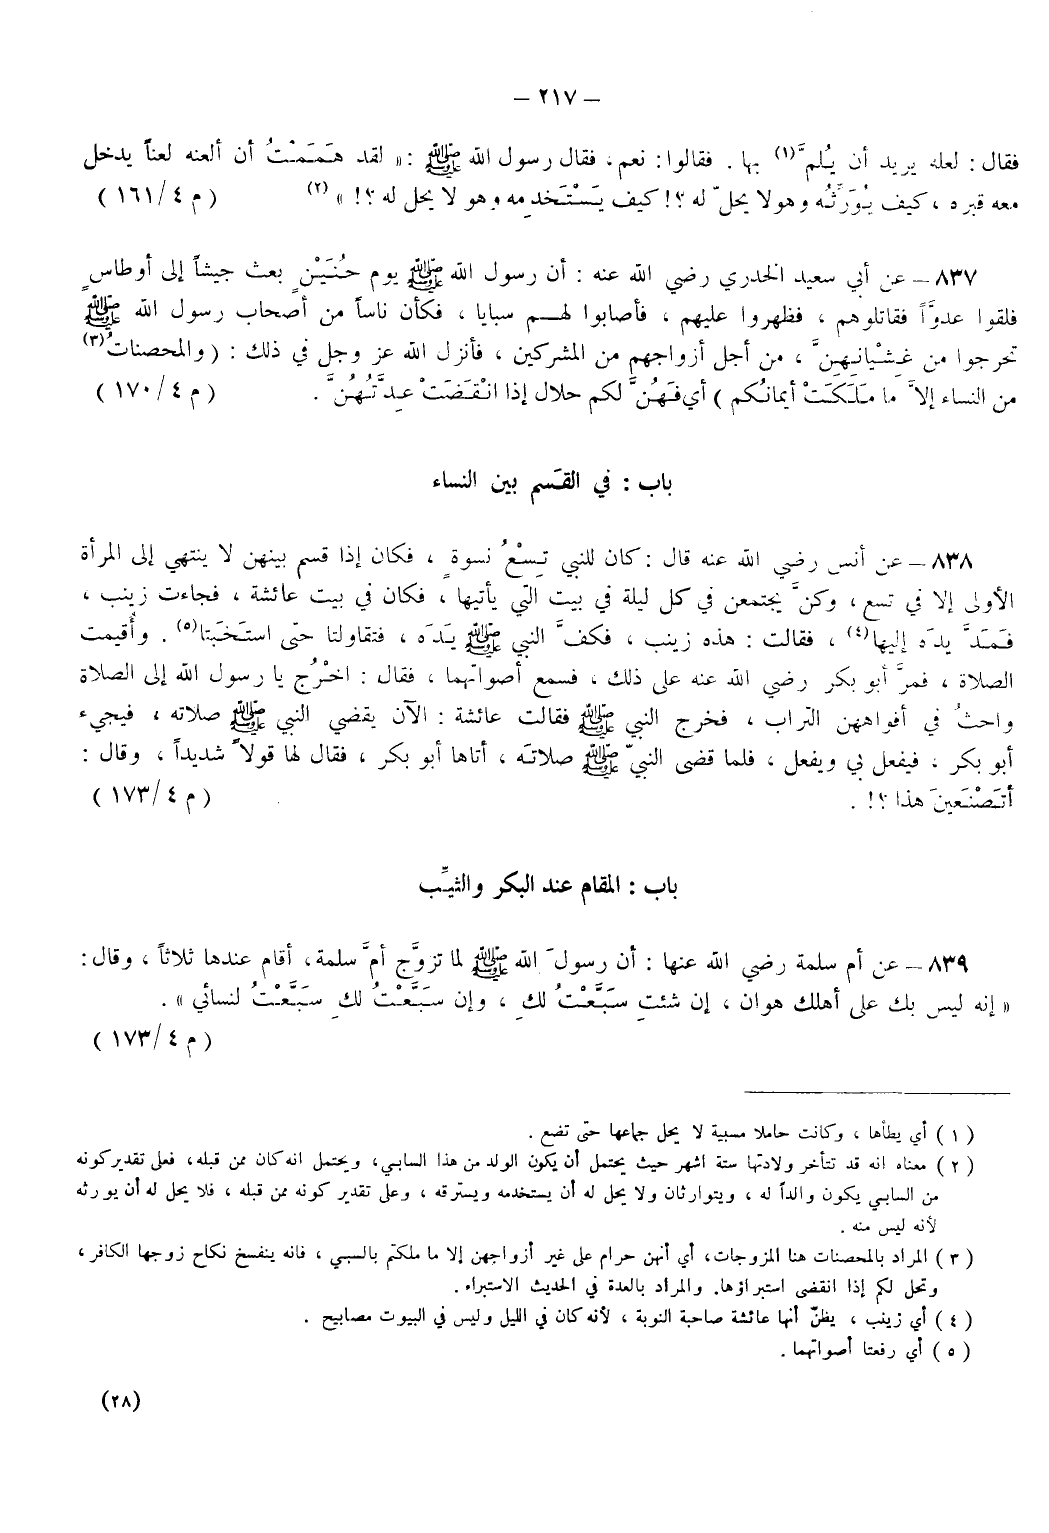 – ٢١٧ –
فقال : لعله يريد أن يُلِمَّ (١) بها . فقالوا : نعم ، فقال رسول الله ﷺ : « لقد هَمَمْتُ أن ألعنه لعناً يدخل
معه قبره ، كيف يُوَرِّثُه وهو لا يحلّ له ؟! كيف يَسْتَخدمه وهو لا يحل له ؟! » (٢) ( م ٤/١٦١ )
٨٣٧ – عن أبي سعيد الخدري رضي الله عنه : أن رسول الله ﷺ يوم حُنَيْنٍ بعث جيشاً إلى أوطاسٍ
فلقوا عدوَّاً فقاتلوهم ، فظهروا عليهم ، فأصابوا لهــم سبايا ، فكأن ناساً من أصحاب رسول الله ﷺ
تحرجوا من غِشْيانِهِنَّ ، من أجل أزواجهم من المشركين ، فأنزل الله عز وجل في ذلك : ( والمحصناتُ (٣)
من النساء إلاَّ ما مَلَكَتْ أيمانُكم ) أي فَهُنَّ لكم حلال إذا انْقَضَتْ عِدَّتُهُنَّ . ( م ٤/١٧٠ )
باب : في القَسم بين النساء
٨٣٨ – عن أنس رضي الله عنه قال : كان للنبي تِسْعُ نسوةٍ ، فكان إذا قسم بينهن لا ينتهي إلى المرأة
الأولى إلا في تسع ، وكنَّ يجتمعن في كل ليلة في بيت التي يأتيها ، فكان في بيت عائشة ، فجاءت زينب ،
فمَدَّ يدَه إليها (٤) ، فقالت : هذه زينب ، فكفَّ النبي ﷺ يَدَه ، فتقاولتا حتى استَخَبتا (٥) . وأُقيمت
الصلاة ، فمرَّ أبو بكر رضي الله عنه على ذلك ، فسمع أصواتهما ، فقال : اخْرُج يا رسول الله إلى الصلاة
واحثُ في أفواههن التراب ، فخرج النبي ﷺ فقالت عائشة : الآن يقضي النبي ﷺ صلاته ، فيجيء
أبو بكر ، فيفعل بي ويفعل ، فلما قضى النبيّ ﷺ صلاتَه ، أتاها أبو بكر ، فقال لها قولاً شديداً ، وقال :
أتَصْنَعينَ هذا ؟! . ( م ٤/١٧٣ )
باب : المقام عند البكر والثيِّب
٨٣٩ – عن أم سلمة رضي الله عنها : أن رسولَ الله ﷺ لما تزوَّج أمَّ سلمة ، أقام عندها ثلاثاً ، وقال :
« إنه ليس بك على أهلك هوان ، إن شئتِ سَبَّعْتُ لكِ ، وإن سَبَّعْتُ لكِ سَبَّعْتُ لنسائي » .
( م ٤/١٧٣ )
( ١ ) أي يطأها ، وكانت حاملا مسبية لا يحل جماعها حتى تضع .
( ٢ ) معناه انه قد تتأخر ولادتها ستة اشهر حيث يحتمل أن يكون الولد من هذا السابي ، ويحتمل انه كان ممن قبله ، فعلى تقدير كونه
من السابي يكون والداً له ، ويتوارثان ولا يحل له أن يستخدمه ويسترقه ، وعلى تقدير كونه ممن قبله ، فلا يحل له أن يورثه
لأنه ليس منه .
( ٣ ) المراد بالمحصنات هنا المزوجات ، أي أنهن حرام على غير أزواجهن إلا ما ملكتم بالسبي ، فانه ينفسخ نكاح زوجها الكافر ،
وتحل لكم إذا انقضى استبراؤها . والمراد بالعدة في الحديث الاستبراء .
( ٤ ) أي زينب ، يظنّ أنها عائشة صاحبة النوبة ، لأنه كان في الليل وليس في البيوت مصابيح .
( ٥ ) أي رفعتا أصواتهما .
(٢٨)